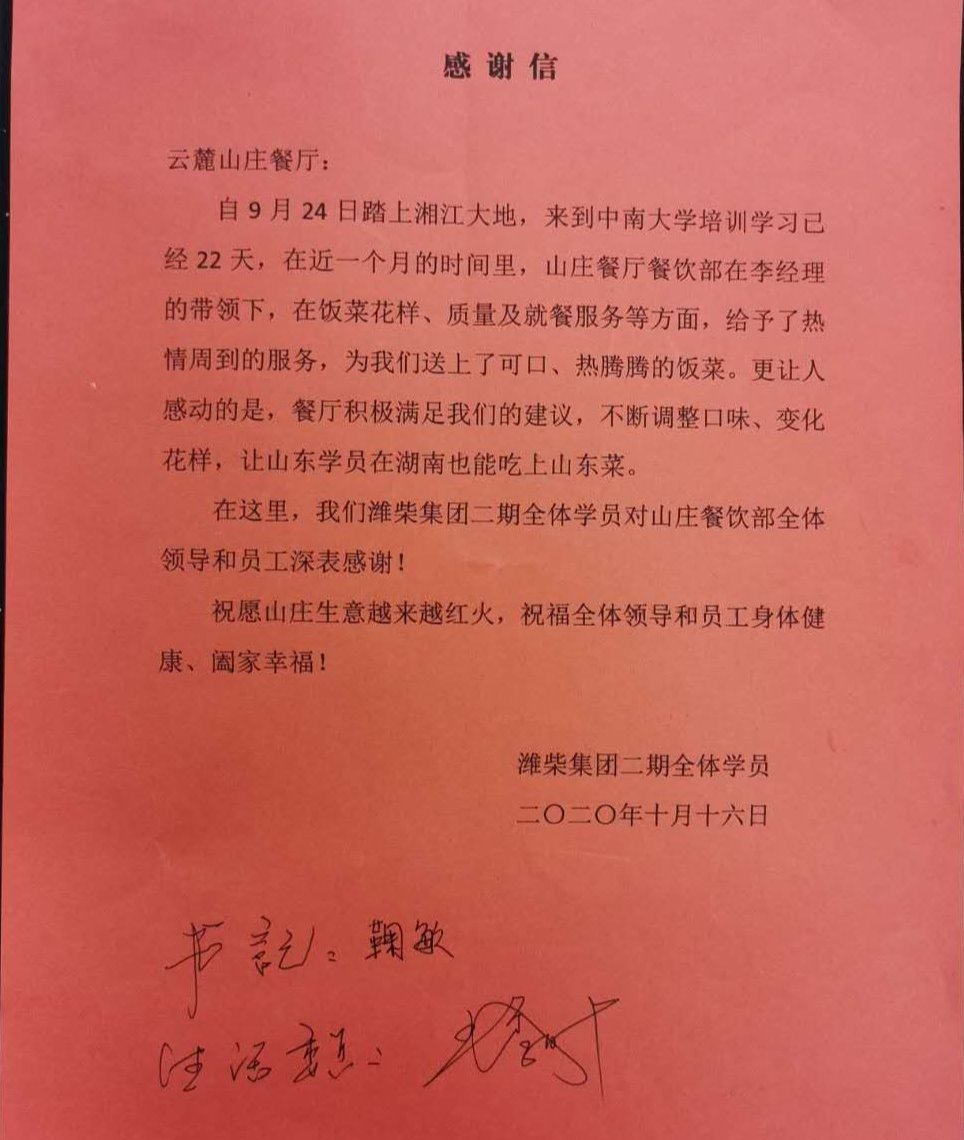 感谢信
云麓山庄餐厅：
自9月24日踏上湘江大地，来到中南大学培训学习已
经22天，在近一个月的时间里，山庄餐厅餐饮部在李经理
的带领下，在饭菜花样、质量及就餐服务等方面，给予了热
情周到的服务，为我们送上了可口、热腾腾的饭菜。更让人
感动的是，餐厅积极满足我们的建议，不断调整口味、变化
花样，让山东学员在湖南也能吃上山东菜。
在这里，我们潍柴集团二期全体学员对山庄餐饮部全体
领导和员工深表感谢！
祝愿山庄生意越来越红火，祝福全体领导和员工身体健
康、阖家幸福！
潍柴集团二期全体学员
二〇二〇年十月十六日
书记：鞠敏
生活委员：